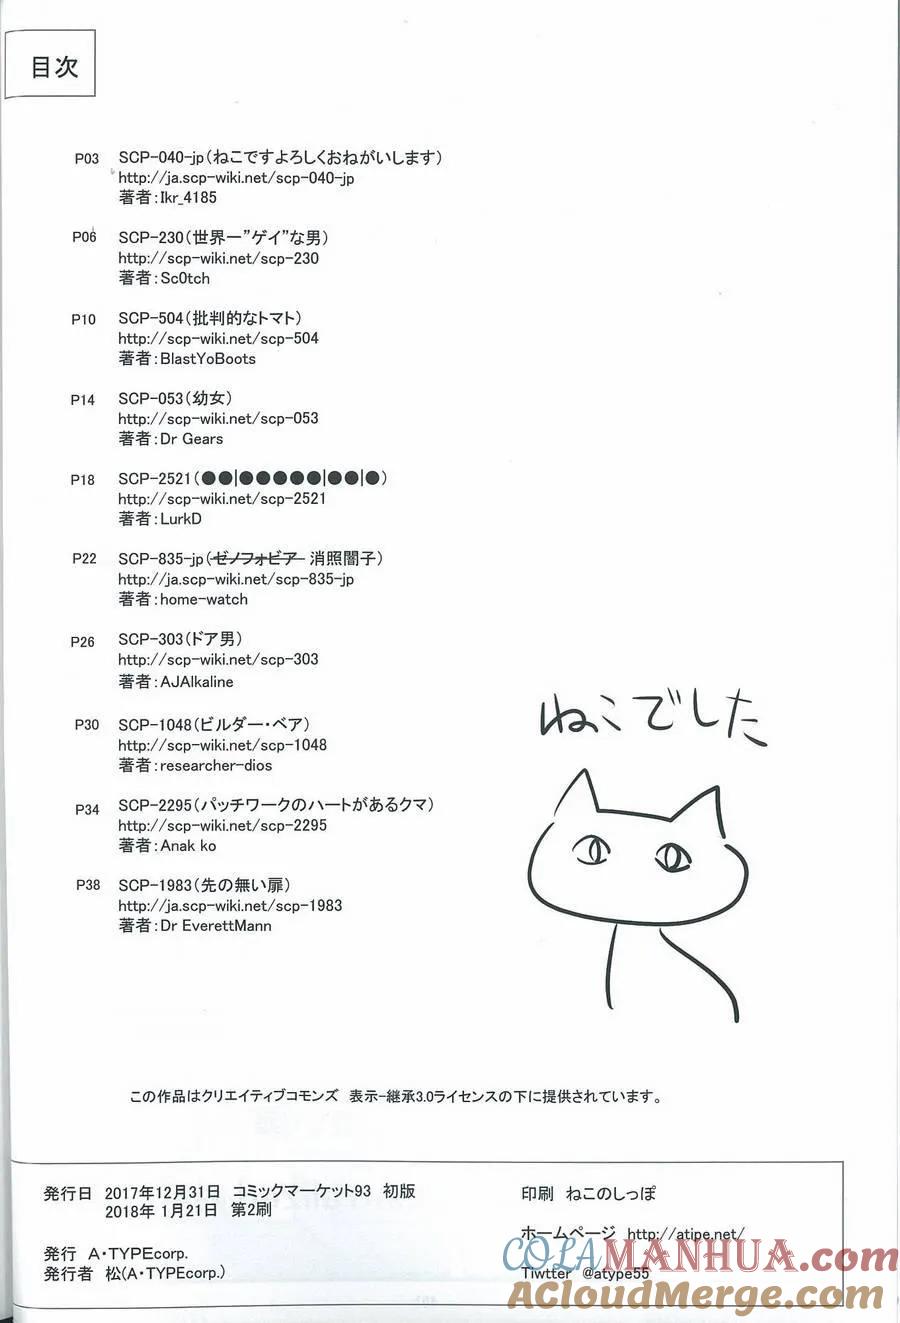 目次
P03 SCP-040-jp(ねこですよろしくおねがいします)
http://ja.scp-wiki.net/scp-040-jp
著者:Ikr_4185
P06 SCP-230(世界一”ゲイ”な男)
http://scp-wiki.net/scp-230
著者:Sc0tch
P10 SCP-504(批判的なトマト)
http://scp-wiki.net/scp-504
著者:BlastYoBoots
P14 SCP-053(幼女)
http://scp-wiki.net/scp-053
著者:Dr Gears
P18 SCP-2521(●●|●●●●●|●●|●)
http://scp-wiki.net/scp-2521
著者:LurkD
P22 SCP-835-jp(ゼノフォビア 消照闇子)
http://ja.scp-wiki.net/scp-835-jp
著者:home-watch
P26 SCP-303(ドア男)
http://scp-wiki.net/scp-303
著者:AJAlkaline
P30 SCP-1048(ビルダー・ベア)
http://scp-wiki.net/scp-1048
著者:researcher-dios
P34 SCP-2295(パッチワークのハートがあるクマ)
http://scp-wiki.net/scp-2295
著者:Anak ko
P38 SCP-1983(先の無い扉)
http://ja.scp-wiki.net/scp-1983
著者:Dr EverettMann
ねこでした
この作品はクリエイティブコモンズ 表示-継承3.0ライセンスの下に提供されています。
発行日 2017年12月31日 コミックマーケット93 初版
2018年 1月21日 第2刷
発行 A・TYPEcorp.
発行者 松(A・TYPEcorp.)
印刷 ねこのしっぽ
ホームページ http://atipe.net/
Tiwtter @atype55
COLAMANHUA.com
ACloudMerge.com